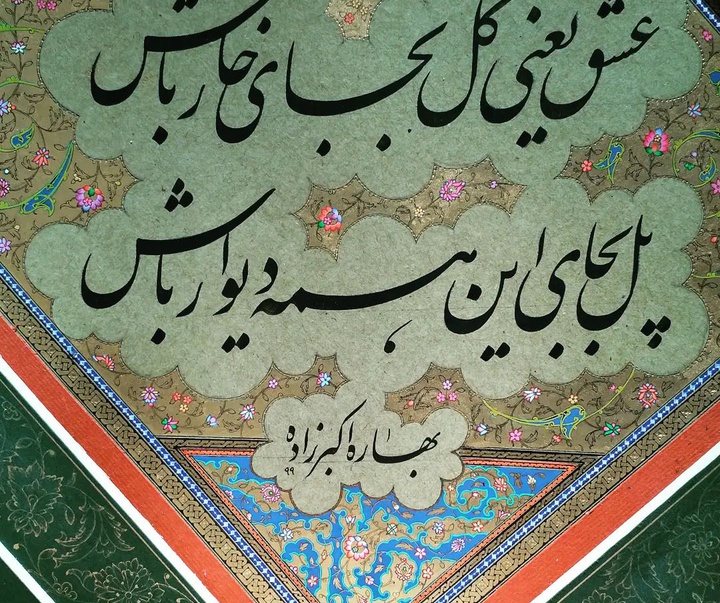 عشق یعنی گل بجای خار باش
پل بجای این همه دیوار باش
بهاره اکبرزاده
۹۹